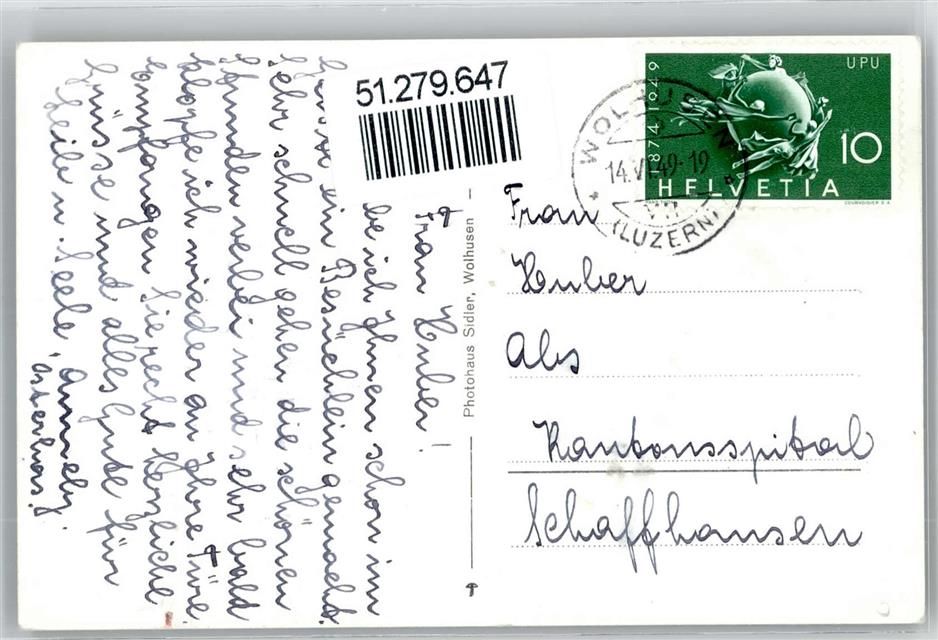 51.279.647
1874-1949
UPU
10
HELVETIA
COURVOISIER S.A.
WOLHUSEN
14.VI.49-19
(LUZERN)
Photohaus Sidler, Wolhusen
Frau
Huber
Abs
Kantonsspital
Schaffhausen
Frau Huber!
be ich Ihnen schon im
ein Besüchlein gemacht.
Sehr schnell gehen die schönen
Stunden vorbei und sehr bald
klopfe ich wieder an Ihre Türe.
Empfangen Sie recht herzliche
Grüsse und alles Gute für
Leib u. Seele, Annely.